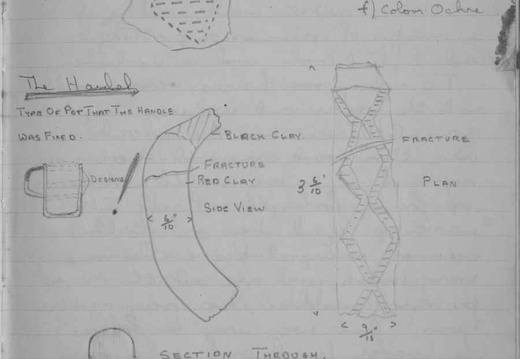 f) Colour. Ochre
The Handel
TYPE OF POT THAT THE HANDLE
WAS FIXED.
BLACK CLAY
FRACTURE
RED CLAY
DESIGNS
SIDE VIEW
6/10"
FRACTURE
3 6/10"
PLAN
9/10"
SECTION THROUGH.